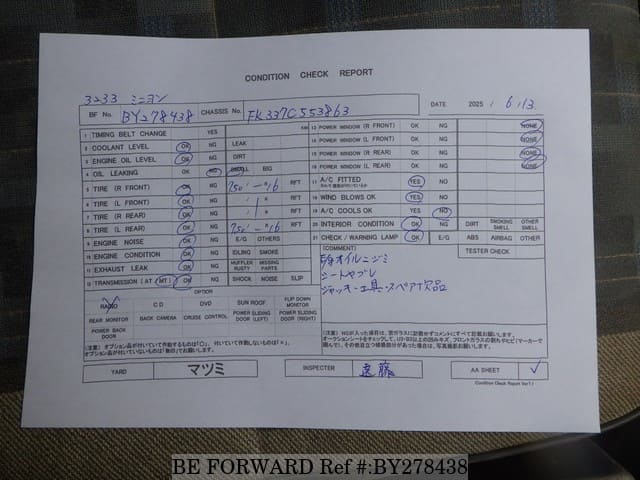 CONDITION CHECK REPORT
3233 ミニヨン
BF No. BY278438 CHASSIS No. FK337C553863 DATE 2025. 6.13
1 TIMING BELT CHANGE YES KM
2 COOLANT LEVEL OK NG LEAK
3 ENGINE OIL LEVEL OK NG DIRT
4 OIL LEAKING OK NG SMALL BIG
5 TIRE (R FRONT) OK NG 750 -16 RFT
6 TIRE (L FRONT) OK NG RFT
7 TIRE (R REAR) OK NG RFT
8 TIRE (L REAR) OK NG 750 -16 RFT
9 ENGINE NOISE OK NG E/G OTHERS
10 ENGINE CONDITION OK NG IDLING SMOKE
11 EXHAUST LEAK OK NG MUFFLER RUSTY MISSING PARTS
12 TRANSMISSION (AT MT) OK NG SHOCK NOISE SLIP
13 POWER WINDOW (R FRONT) OK NG NONE
14 POWER WINDOW (L FRONT) OK NG NONE
15 POWER WINDOW (R REAR) OK NG NONE
16 POWER WINDOW (L REAR) OK NG NONE
17 A/C FITTED YES NG
18 WIND BLOWS OK YES NG
19 A/C COOLS OK YES NO
20 INTERIOR CONDITION OK NG DIRT SMOKING SMELL OTHER SMELL
21 CHECK/WARNING LAMP OK E/G ABS AIRBAG OTHER
(COMMENT) TESTER CHECK
オイルニジミ
シートヤブレ
ジャッキー工具・スペア欠品
OPTION
RADIO CD DVD SUN ROOF FLIP DOWN MONITOR
REAR MONITOR BACK CAMERA CRUISE CONTROL POWER SLIDING DOOR (LEFT) POWER SLIDING DOOR (RIGHT)
POWER BACK DOOR
(注意) オプション品が付いていて作動するものは「○」、付いていて作動しないものは「×」、
オプション品が付いていないものは「無印」でお願いします。
YARD マツミ INSPECTER 遠藤 AA SHEET ✓
Condition Check Report Ver1.1
BE FORWARD Ref #:BY278438